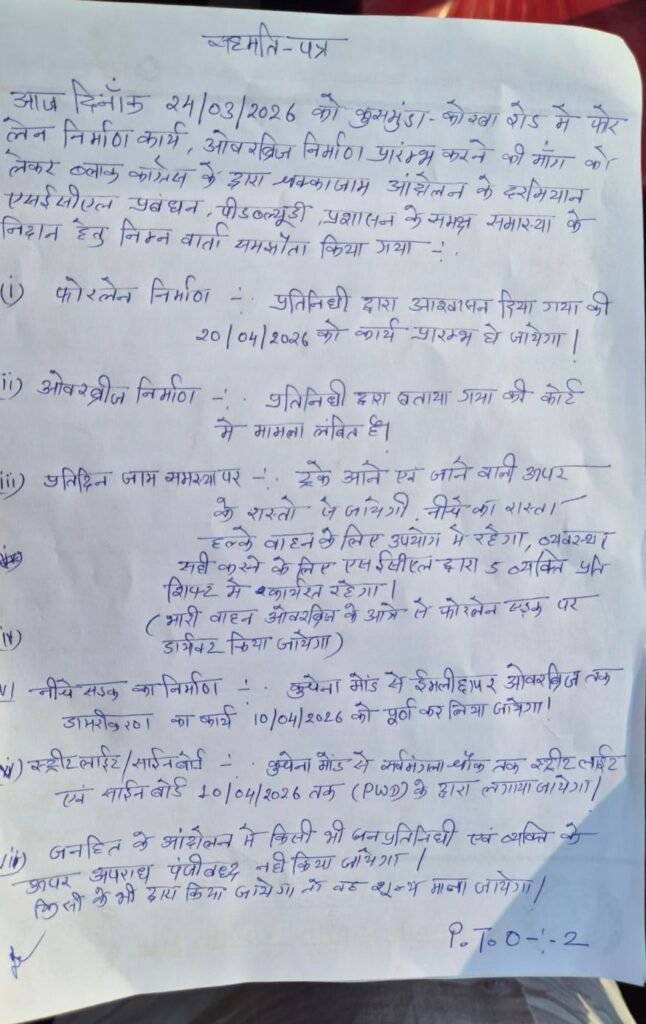 सहमति-पत्र
आज दिनाँक 24/03/2026 को कुसमुंडा-कोरबा रोड में फोर
लेन निर्माण कार्य, ओवरब्रिज निर्माण प्रारंम्भ करने की मांग को
लेकर ब्लाक कांग्रेस के द्वारा चक्काजाम आंदोलन के दरमियान
एसईसीएल प्रबंधन, पीडब्ल्यूडी, प्रशासन के समक्ष समास्या के
निदान हेतु निम्न वार्ता समझौता किया गया -:.
(i) फोरलेन निर्माण -:. प्रतिनिधी द्वारा आश्वासन दिया गया की
20/04/2026 को कार्य प्रारम्भ हो जायेगा।
ii) ओवरब्रीज निर्माण -:. प्रतिनिधी द्वारा बताया गया की कोर्ट
में मामला लंबित है।
iii) प्रतिदिन जाम समस्या पर -:. ट्रके आने एवं जाने वाली ऊपर
के रास्तो से जायेगी, नीचे का रास्ता
हल्के वाहन के लिए उपयोग में रहेगा, व्यवस्था
सही करने के लिए एसईसीएल द्वारा 5 व्यक्ति प्रति
शिफ्ट में कार्यरत रहेगा।
(भारी वाहन ओवरब्रिज के आगे से फोरलेन सड़क पर
iv) डायवर्ट किया जायेगा)
v) नीचे सडक का निर्माण -:. कुचेना मोड से ईमलीछापर ओवरब्रिज तक
डामरीकरण का कार्य 10/04/2026 को पूर्ण कर लिया जायेगा।
vi) स्ट्रीट लाईट/साईन बोर्ड -:. कुचेना मोड से सर्वमंगला चौक तक स्ट्रीट लाईट
एवं साईन बोर्ड 10/04/2026 तक (PWD) के द्वारा लगाया जायेगा।
vii) जनहित के आंदोलन में किसी भी जनप्रतिनिधी एवं व्यक्ति के
ऊपर अपराध पंजीबध्द नही किया जायेगा।
किसी के भी द्वारा किया जायेगा तो वह शून्य माना जायेगा।
P.T.O -:- 2